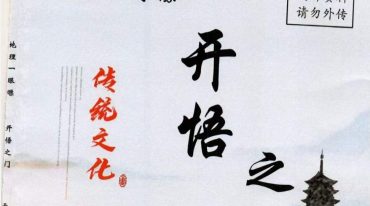 请勿外传
开悟之
传统文化
地理一眼
开悟之门